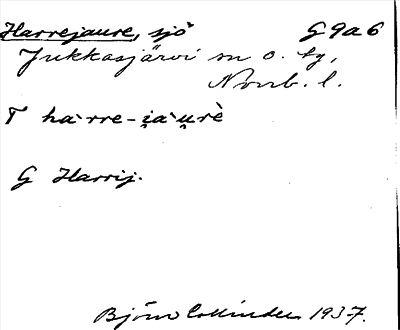 Harrejaure, sjö G 9a 6
Jukkasjärvi sn o. tg,
Norrb. l.
T ha·rre-i̯a·u̯rè
G Harrij.
Björn Collinder 1937.